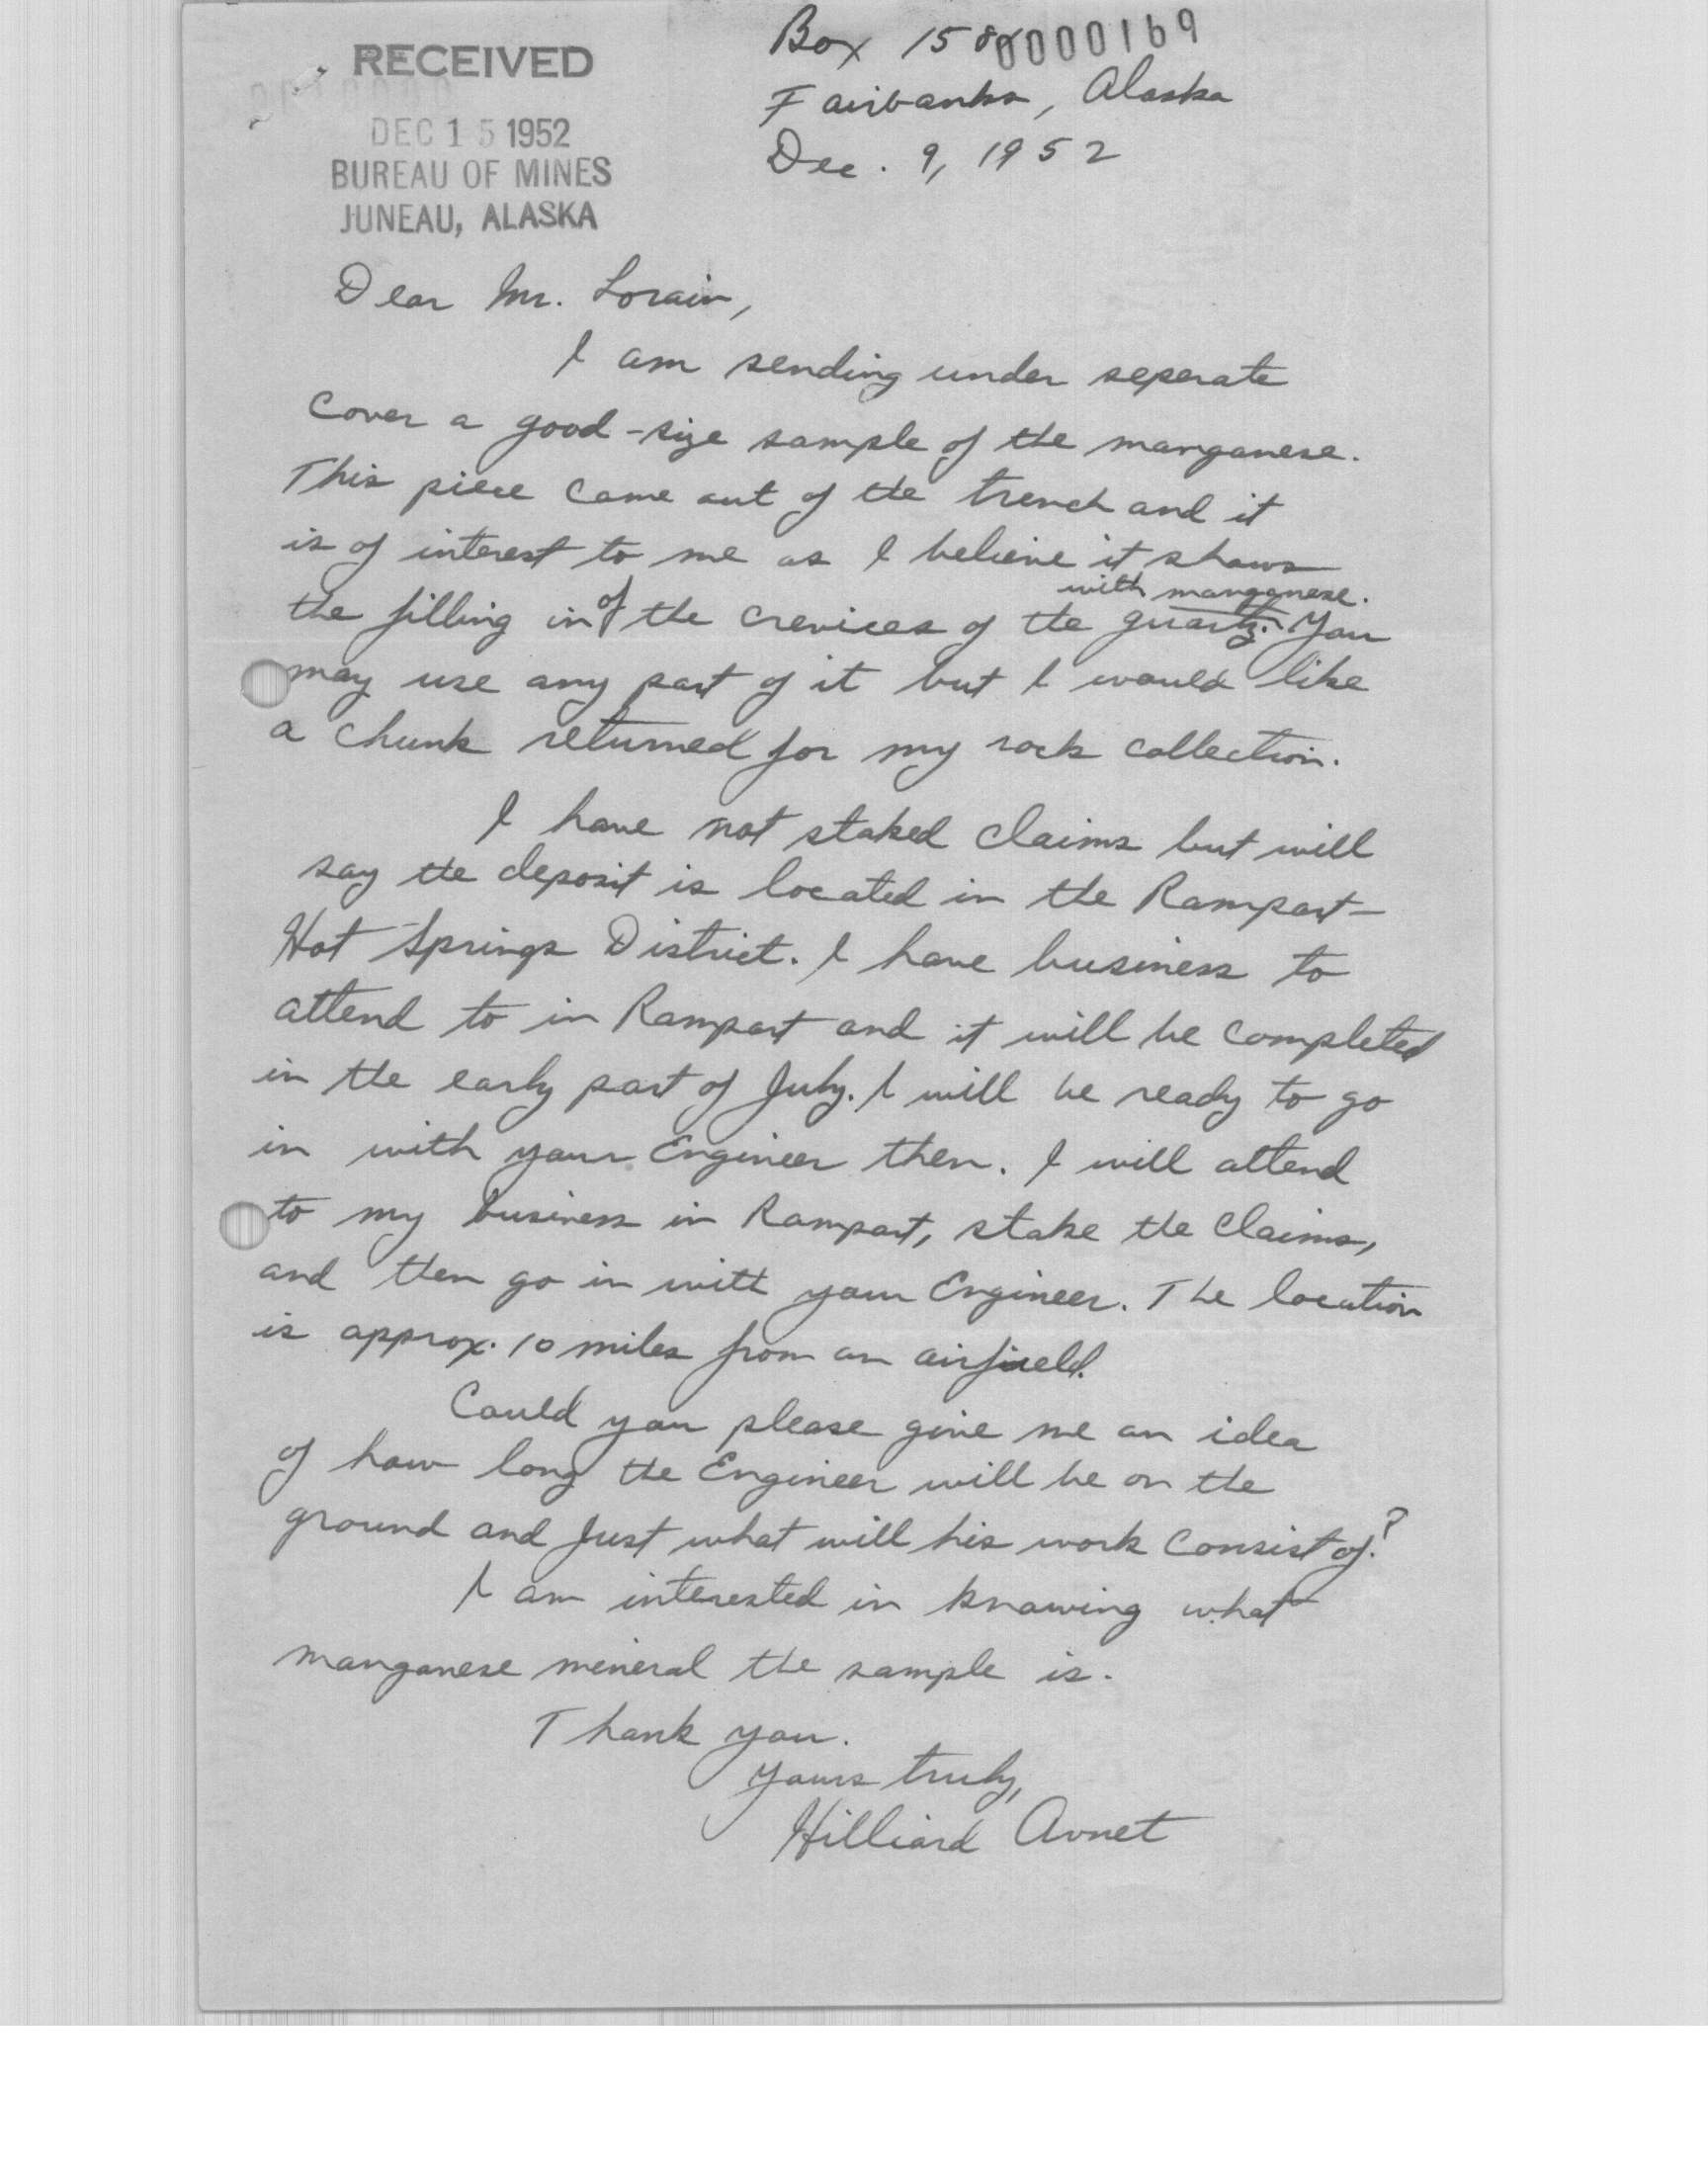 RECEIVED
DEC 15 1952
BUREAU OF MINES
JUNEAU, ALASKA
Box 158
0000169
Fairbanks, Alaska
Dec. 9, 1952
Dear Mr. Lorain,
I am sending under seperate
cover a good-size sample of the manganese.
This piece came out of the trench and it
is of interest to me as I believe it shows
with manganese.
the filling in of the crevices of the quartz. You
may use any part of it but I would like
a chunk returned for my rock collection.
I have not staked claims but will
say the deposit is located in the Rampart-
Hot Springs District. I have business to
attend to in Rampart and it will be completed
in the early part of July. I will be ready to go
in with your Engineer then. I will attend
to my business in Rampart, stake the claims,
and then go in with your Engineer. The location
is approx. 10 miles from an airfield.
Could you please give me an idea
of how long the Engineer will be on the
ground and just what will his work consist of?
I am interested in knowing what
manganese mineral the sample is.
Thank you.
Yours truly,
Hilliard Avnet